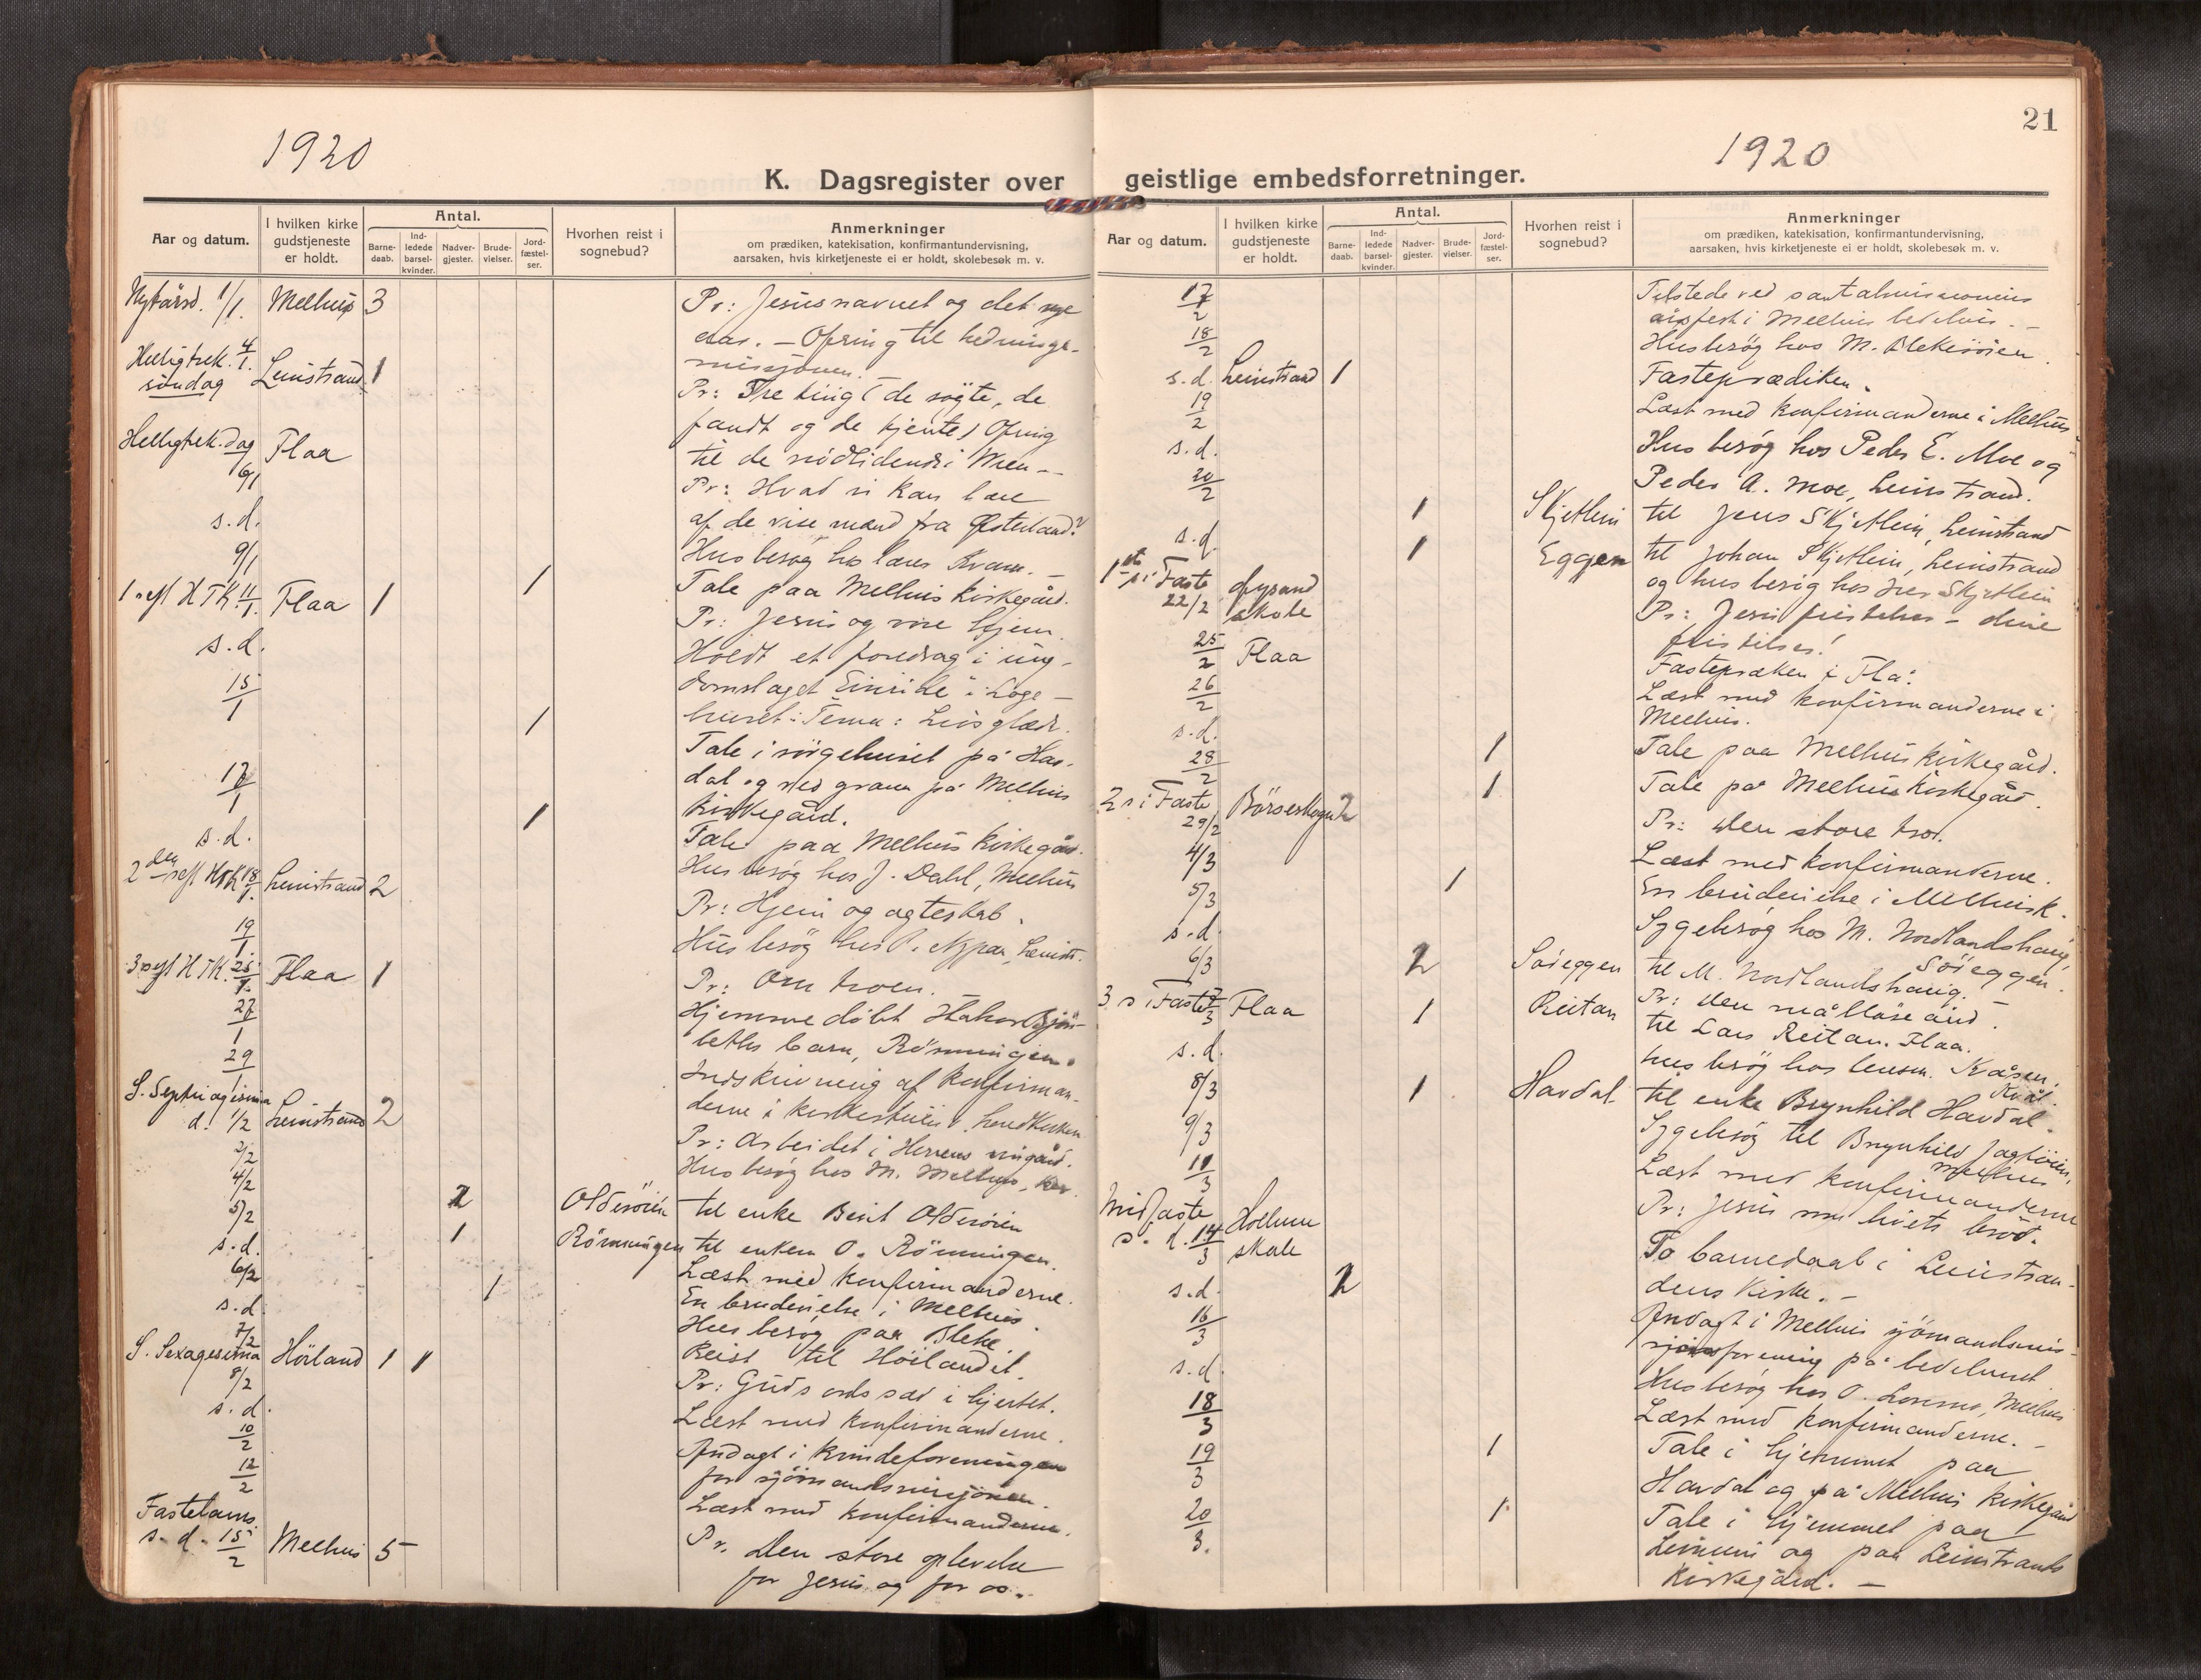 1920
K. Dagsregister over
Aar og datum.
I hvilken kirke gudstjeneste er holdt.
Antal.
Barne-daab.
Ind-ledede barsel-kvinder.
Nadver-gjester.
Brude-vielser.
Jord-fæstel-ser.
Hvorhen reist i sognebud?
Anmerkninger
om prædiken, katekisation, konfirmantundervisning,
aarsaken, hvis kirketjeneste ei er holdt, skolebesøk m. v.
Nytårsd. 1/1. Melhus 3 Pr: Jesusnavnet og det nye
aar. – Ofring til hedninge-
misjonen. –
Helligtrek. 4/1. søndag Leinstrand 1 Pr: Tre ting (de søgte, de
fandt og de kjente) Ofring
til de nødlidende i Wien –
Helligtrek. dag 6/1 Flaa Pr: Hvad vi kan lære
af de vise mænd fra Østerland?
s. d. Husbesøg hos Kvam. –
9/1 1 Tale paa Melhus Kirkegård.
1. s. eft HTK 11/1. Flaa 1 Pr: Jesus og vore hjem.
s. d. Holdt et foredrag i ung-
domslaget "Einride" i Loge-
huset: Tema: Livsglæde.
15/1 1 Tale i sørgehuset på Hav-
dal og ved graven på Melhus
Kirkegård.
17/1 1 Tale paa Melhus Kirkegård.
s. d. Husbesøg hos J. Dahl, Melhus
2den s eft HTK 18/1. Leinstrand 2 Pr: Hjem og ægteskab.
19/1 Husbesøg hos Leinstr.
3 s eft HTK. 25/1. Flaa 1 Pr: Om troen. –
27/1 Hjemme døbt
barn, Rømmingen.
29/1 Indskrivning af Konfirman-
derne i
S. Septuagesima d. 1/2 Leinstrand 2 Pr: Arbeidet i Herrens vingård.
2/2 Husbesøg hos M. Melhus,
4/2 2 Oldersøien til enke Berit Oldersøien
5/2 1 Rømmingen til enkem O. Rømmingen.
s. d. Læst med Konfirmanderne.
6/2 1 En brudevielse i Melhus.
s. d. Husbesøg paa Bleke.
7/2 Reist til Höilandet.
S. Sexagesima 8/2 Höiland 1 1 Pr: Guds ords sæd i hjertet.
s. d. Læst med Konfirmanderne.
10/2 Andagt i Kvindeforeningen
for sjömandsmisjonen.
12/2 Læst med Konfirmanderne.
Fastelavns s. d. 15/2 Melhus 5 Pr. Den store oplevelse
for Jesus og for os.
21
1920
geistlige embedsforretninger.
Aar og datum.
I hvilken kirke gudstjeneste er holdt.
Antal.
Barne-daab.
Ind-ledede barsel-kvinder.
Nadver-gjester.
Brude-vielser.
Jord-fæstel-ser.
Hvorhen reist i sognebud?
Anmerkninger
om prædiken, katekisation, konfirmantundervisning,
aarsaken, hvis kirketjeneste ei er holdt, skolebesøk m. v.
17/2 Tilstede ved santalmissionens
årsfest i Melhus bedehus. –
18/2 Husbesøg hos M. Blekesøien.
s. d. Leinstrand 1 Fasteprædiken.
19/2 Læst med Konfirmanderne i Melhus.
s. d. Husbesøg hos Peder E. Moe og
Peder A. Moe, Leinstrand.
20/2 1 Skjetlein til Jens Skjetlein, Leinstrand
s. d. 1 Eggen til Johan Skjetlein, Leinstrand
og husbesøg hos Skjetlein
1ste s i Faste 22/2 Øysand skole Pr: Jesu fristelser – dine
fristelser!
25/2 Flaa Fastepræken i Flå.
26/2 Læst med Konfirmanderne i
Melhus.
s. d. 1 Tale paa Melhus Kirkegård.
28/2 1 Tale på Melhus Kirkegård.
2 s i Faste 29/2 Börseskogn 2 Pr: Den store tro.
4/3 Læst med Konfirmanderne.
5/3 1 En brudevielse i Melhus k.
s. d. Sygebesøg hos M. Nordlandshaug,
Söreggen.
6/3 2 Söreggen til M. Nordlandshaug.
3 s i Faste 7/3 Flaa 1 Reitan Pr: den målløse ånd.
til Lars Reitan. Flaa.
s. d. Husbesøg hos lensm. Kråsen,
Kvål.
8/3 1 Havdal til enke Brynhild Havdal.
9/3 Sygebesøg til Brynhild Jagtøien,
Melhus
11/3 Læst med Konfirmanderne
Midfaste s. d. 14/3 Hollum skole Pr: Jesus livets brød.
s. d. 2 To barnedaab i Leinstran-
dens Kirke. –
16/3 Andagt i Melhus sjömandsmis-
sjonsforening på bedehuset
s. d. Husbesøg hos O. Losmo, Melhus
18/3 Læst med Konfirmanderne. –
19/3 1 Tale i hjemmet paa
Havdal og på Melhus Kirkegård
20/3. 1 Tale i hjemmet paa
og paa Leinstrands
Kirkegård. –